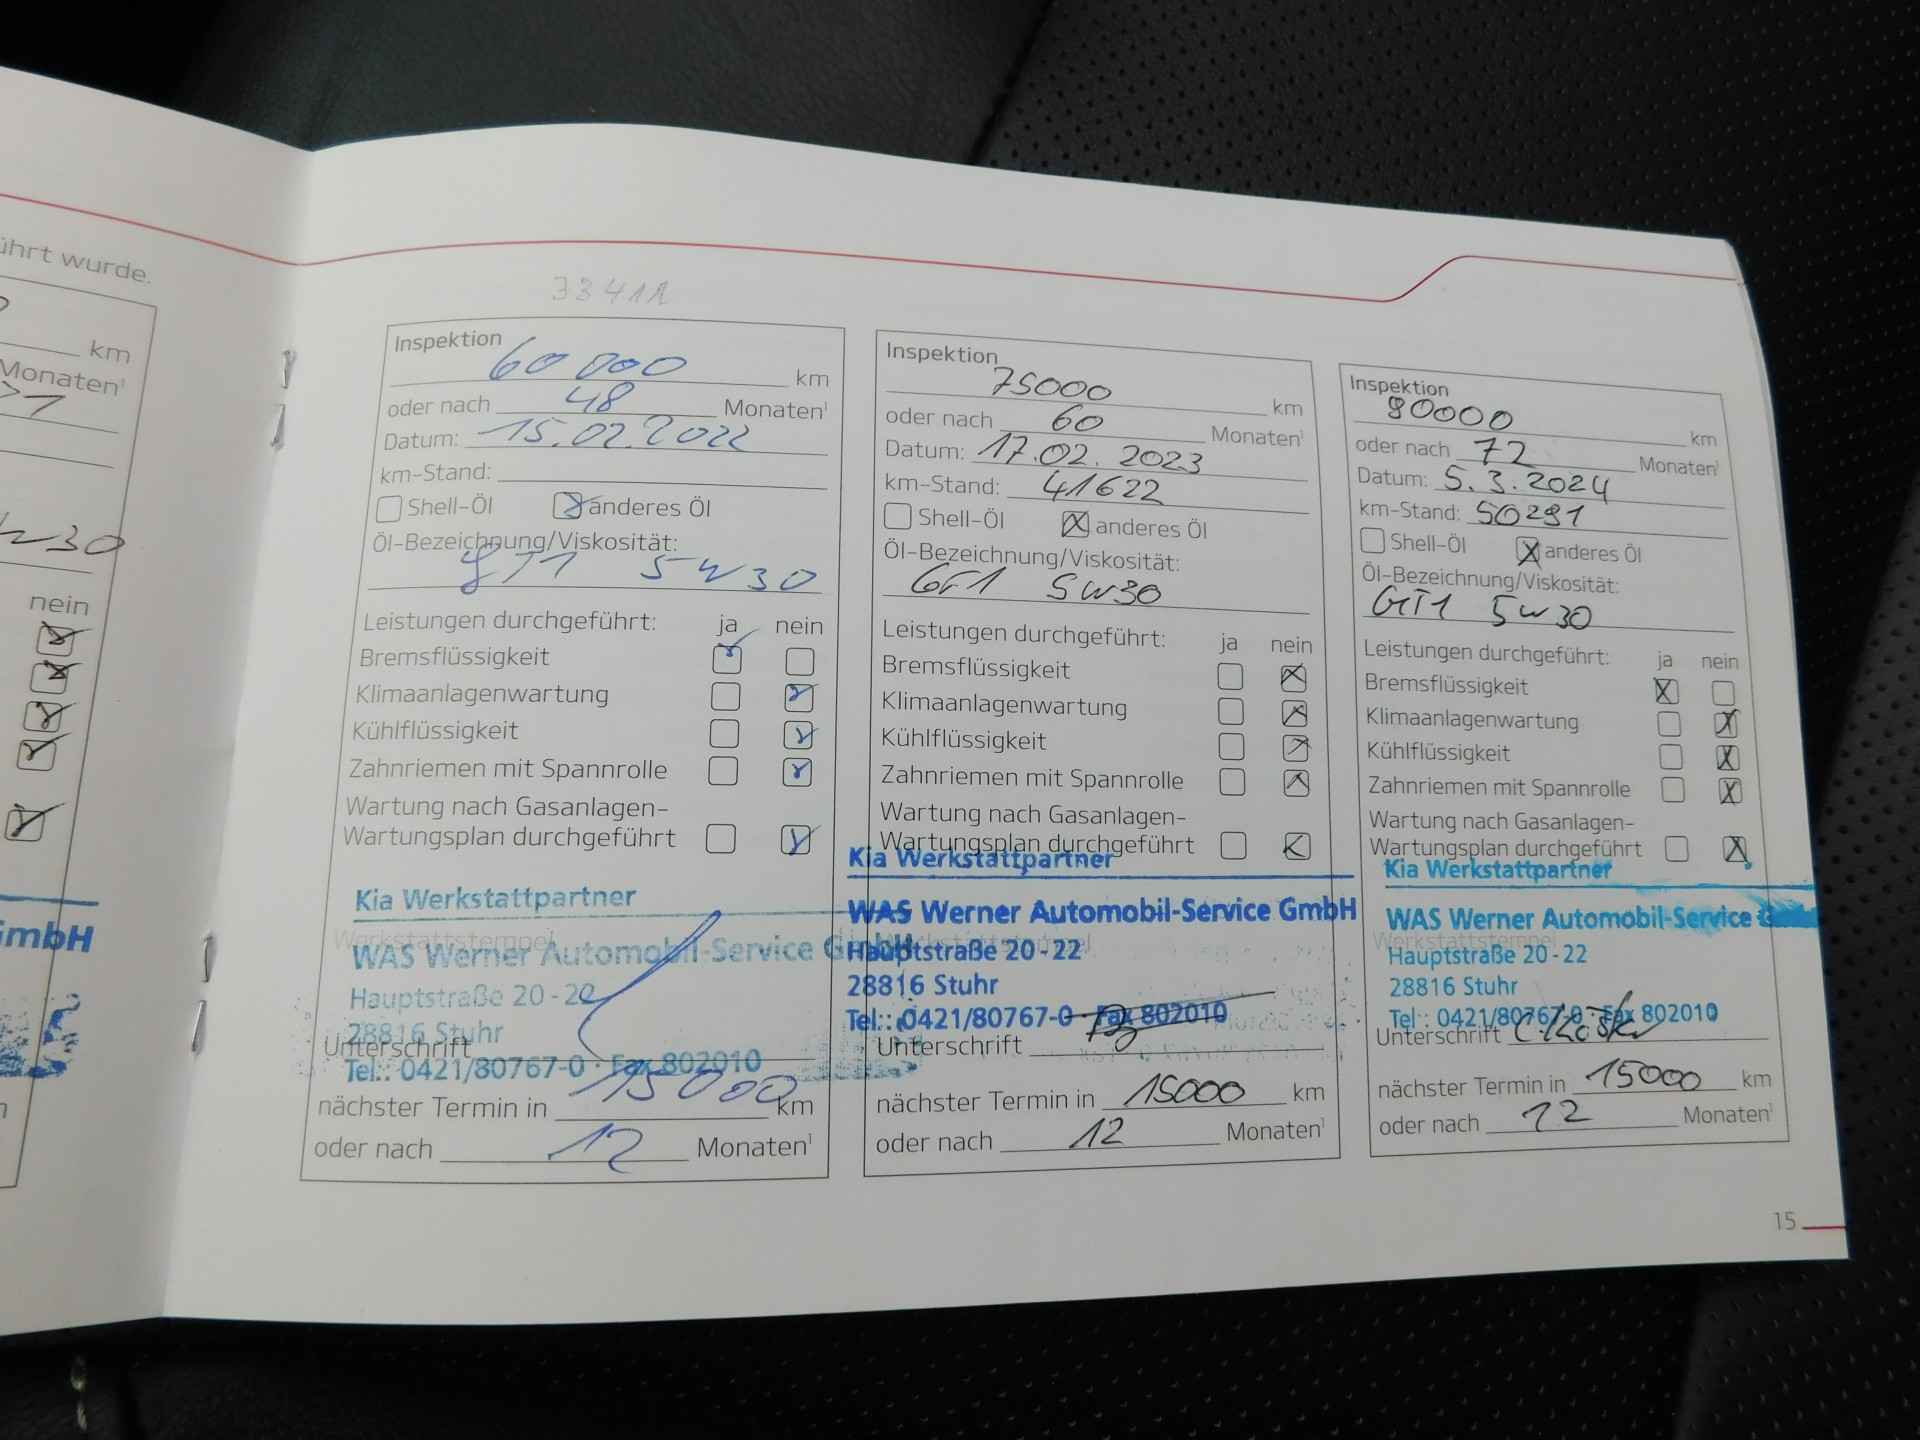 ührt wurde.
km
Monaten¹
W30
nein
GmbH
33411
Inspektion
60 000 km
oder nach 48 Monaten¹
Datum: 15.02.2022
km-Stand:
Shell-Öl anderes Öl
Öl-Bezeichnung/Viskosität:
GT1 5W30
Leistungen durchgeführt: ja nein
Bremsflüssigkeit
Klimaanlagenwartung
Kühlflüssigkeit
Zahnriemen mit Spannrolle
Wartung nach Gasanlagen-
Wartungsplan durchgeführt
Kia Werkstattpartner
Werkstattstempel
WAS Werner Automobil-Service GmbH
Hauptstraße 20-22
28816 Stuhr
Unterschrift
Tel.: 0421/80767-0 · Fax 802010
nächster Termin in 15000 km
oder nach 12 Monaten¹
Inspektion
75000 km
oder nach 60 Monaten¹
Datum: 17.02.2023
km-Stand: 41622
Shell-Öl anderes Öl
Öl-Bezeichnung/Viskosität:
GF1 5W30
Leistungen durchgeführt: ja nein
Bremsflüssigkeit
Klimaanlagenwartung
Kühlflüssigkeit
Zahnriemen mit Spannrolle
Wartung nach Gasanlagen-
Wartungsplan durchgeführt
Kia Werkstattpartner
WAS Werner Automobil-Service GmbH
Werkstattstempel
Hauptstraße 20-22
28816 Stuhr
Tel.: 0421/80767-0 Fax 802010
Unterschrift
nächster Termin in 15000 km
oder nach 12 Monaten¹
Inspektion
90000 km
oder nach 72 Monaten¹
Datum: 5.3.2024
km-Stand: 50291
Shell-Öl anderes Öl
Öl-Bezeichnung/Viskosität:
GT1 5W30
Leistungen durchgeführt: ja nein
Bremsflüssigkeit
Klimaanlagenwartung
Kühlflüssigkeit
Zahnriemen mit Spannrolle
Wartung nach Gasanlagen-
Wartungsplan durchgeführt
Kia Werkstattpartner
WAS Werner Automobil-Service
Werkstattstempel
Hauptstraße 20-22
28816 Stuhr
Tel.: 0421/80767-0 Fax 802010
Unterschrift
nächster Termin in 15000 km
oder nach 12 Monaten¹
15